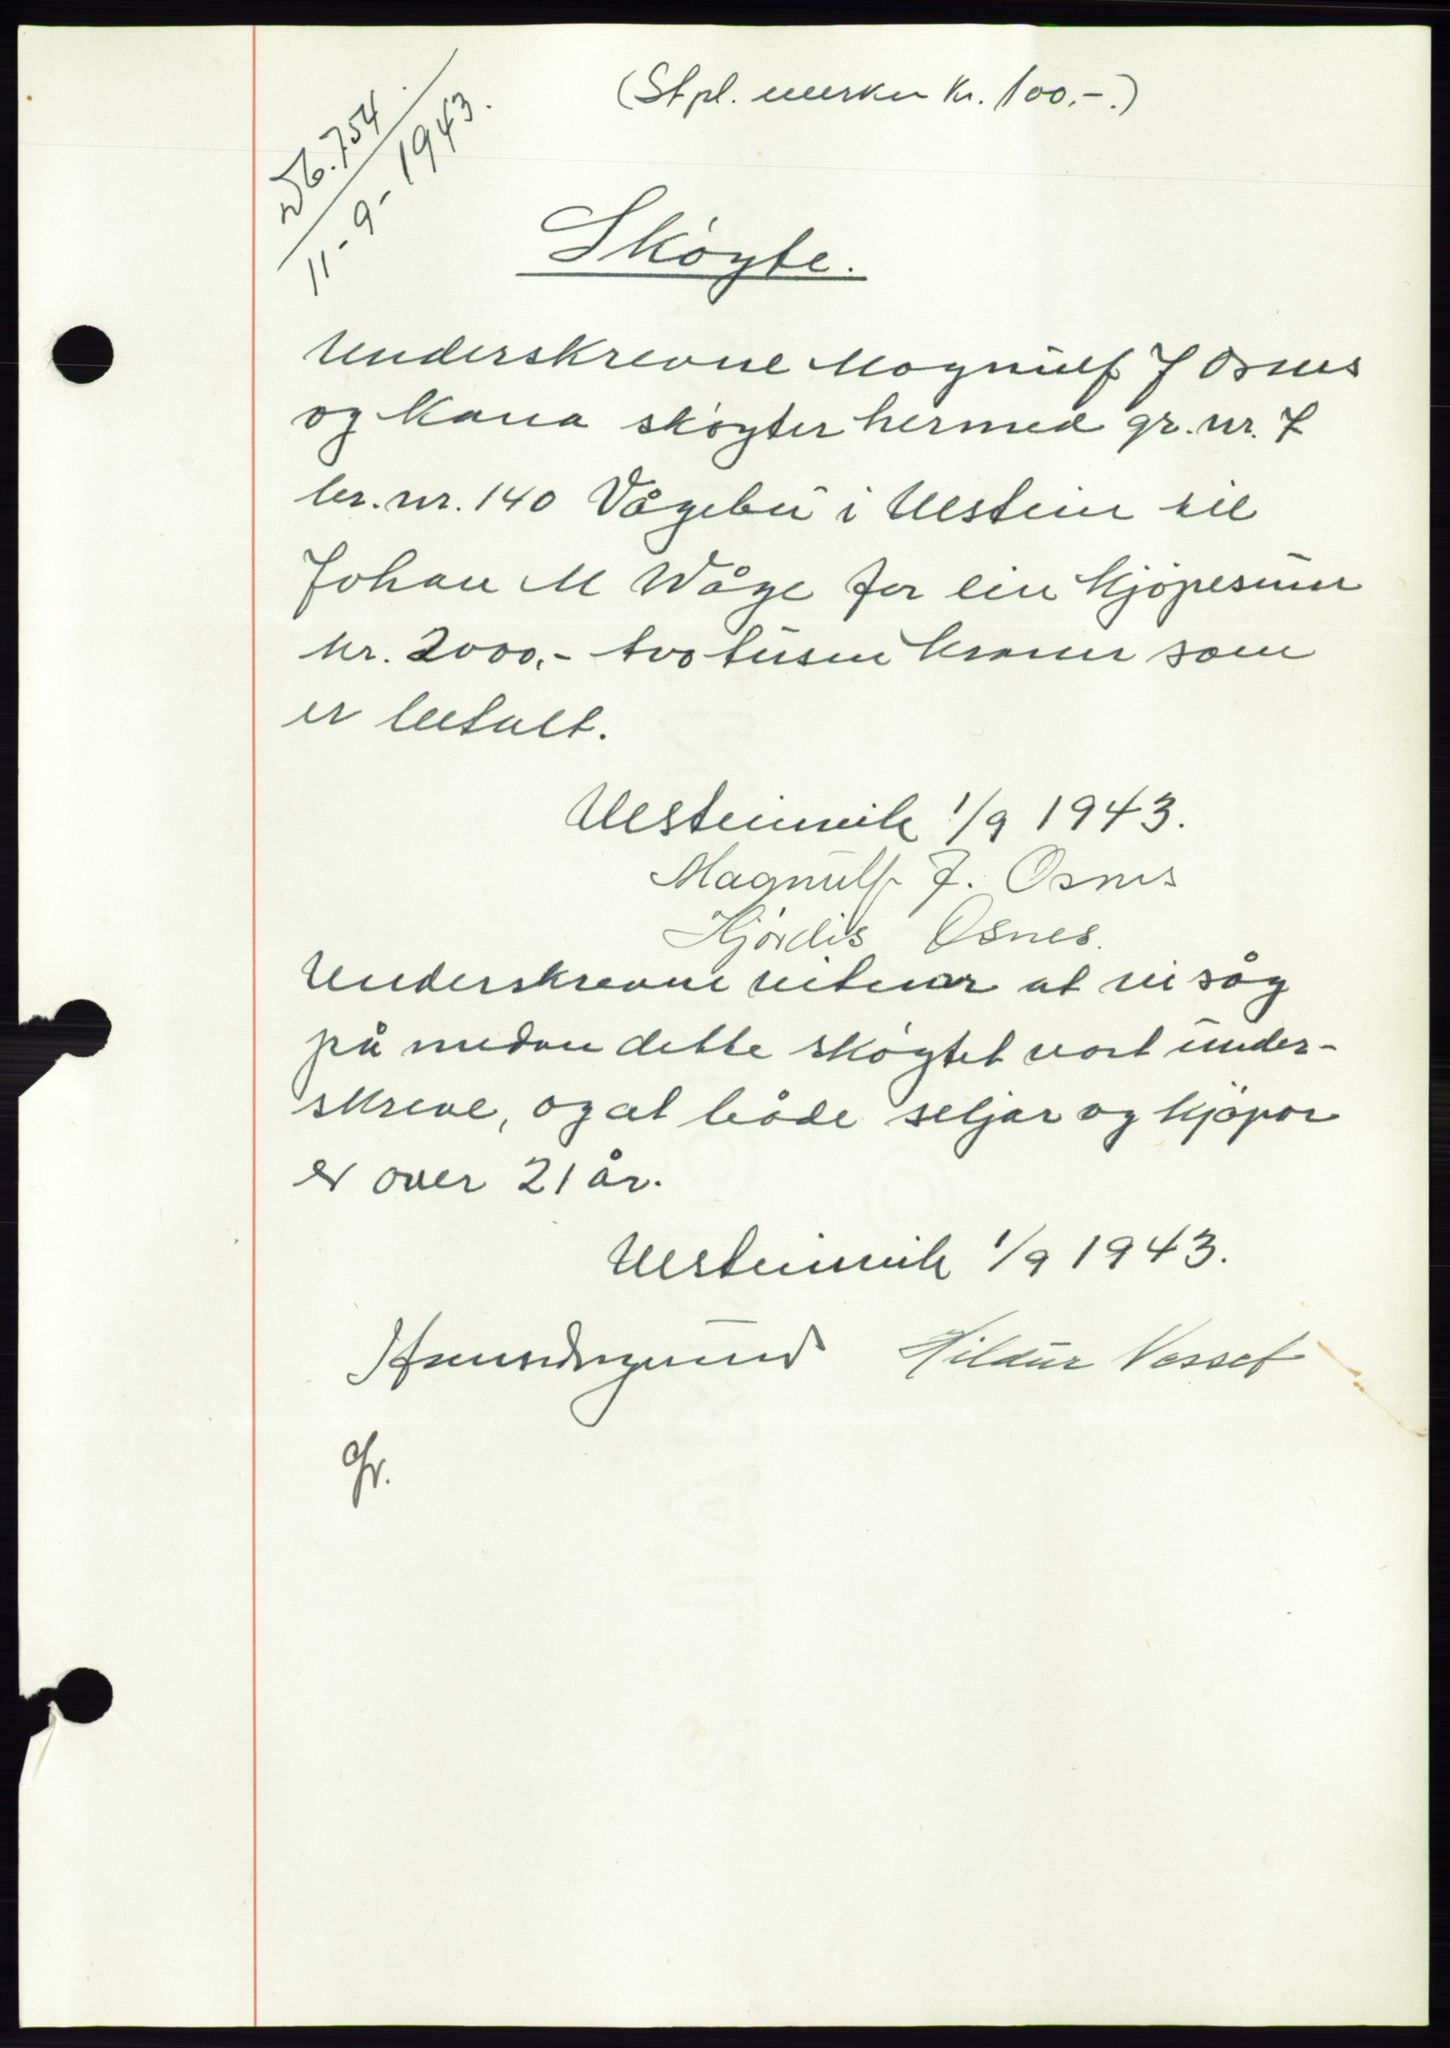 (Stpl. merker kr. 100.-.)
Db. 754
11-9-1943.
Skøyte.
Underskrevne Magnulf J Osnes
og Kona skøyter hermed gr. nr. 7
br. nr. 140 Vågebu i Ulstein til
Johan M Wåge for ein kjøpesum
kr. 2000.- tvo tusen kroner som
er betalt.
Ulsteinvik 1/9 1943.
Magnulf J. Osnes
Hjördis Osnes.
Underskrevne vitnar at vi såg
på medan dette skøytet vart under-
skreve, og at både seljar og kjøpar
er over 21 år.
Ulsteinvik 1/9 1943.
Hildur Nesset
Gr.